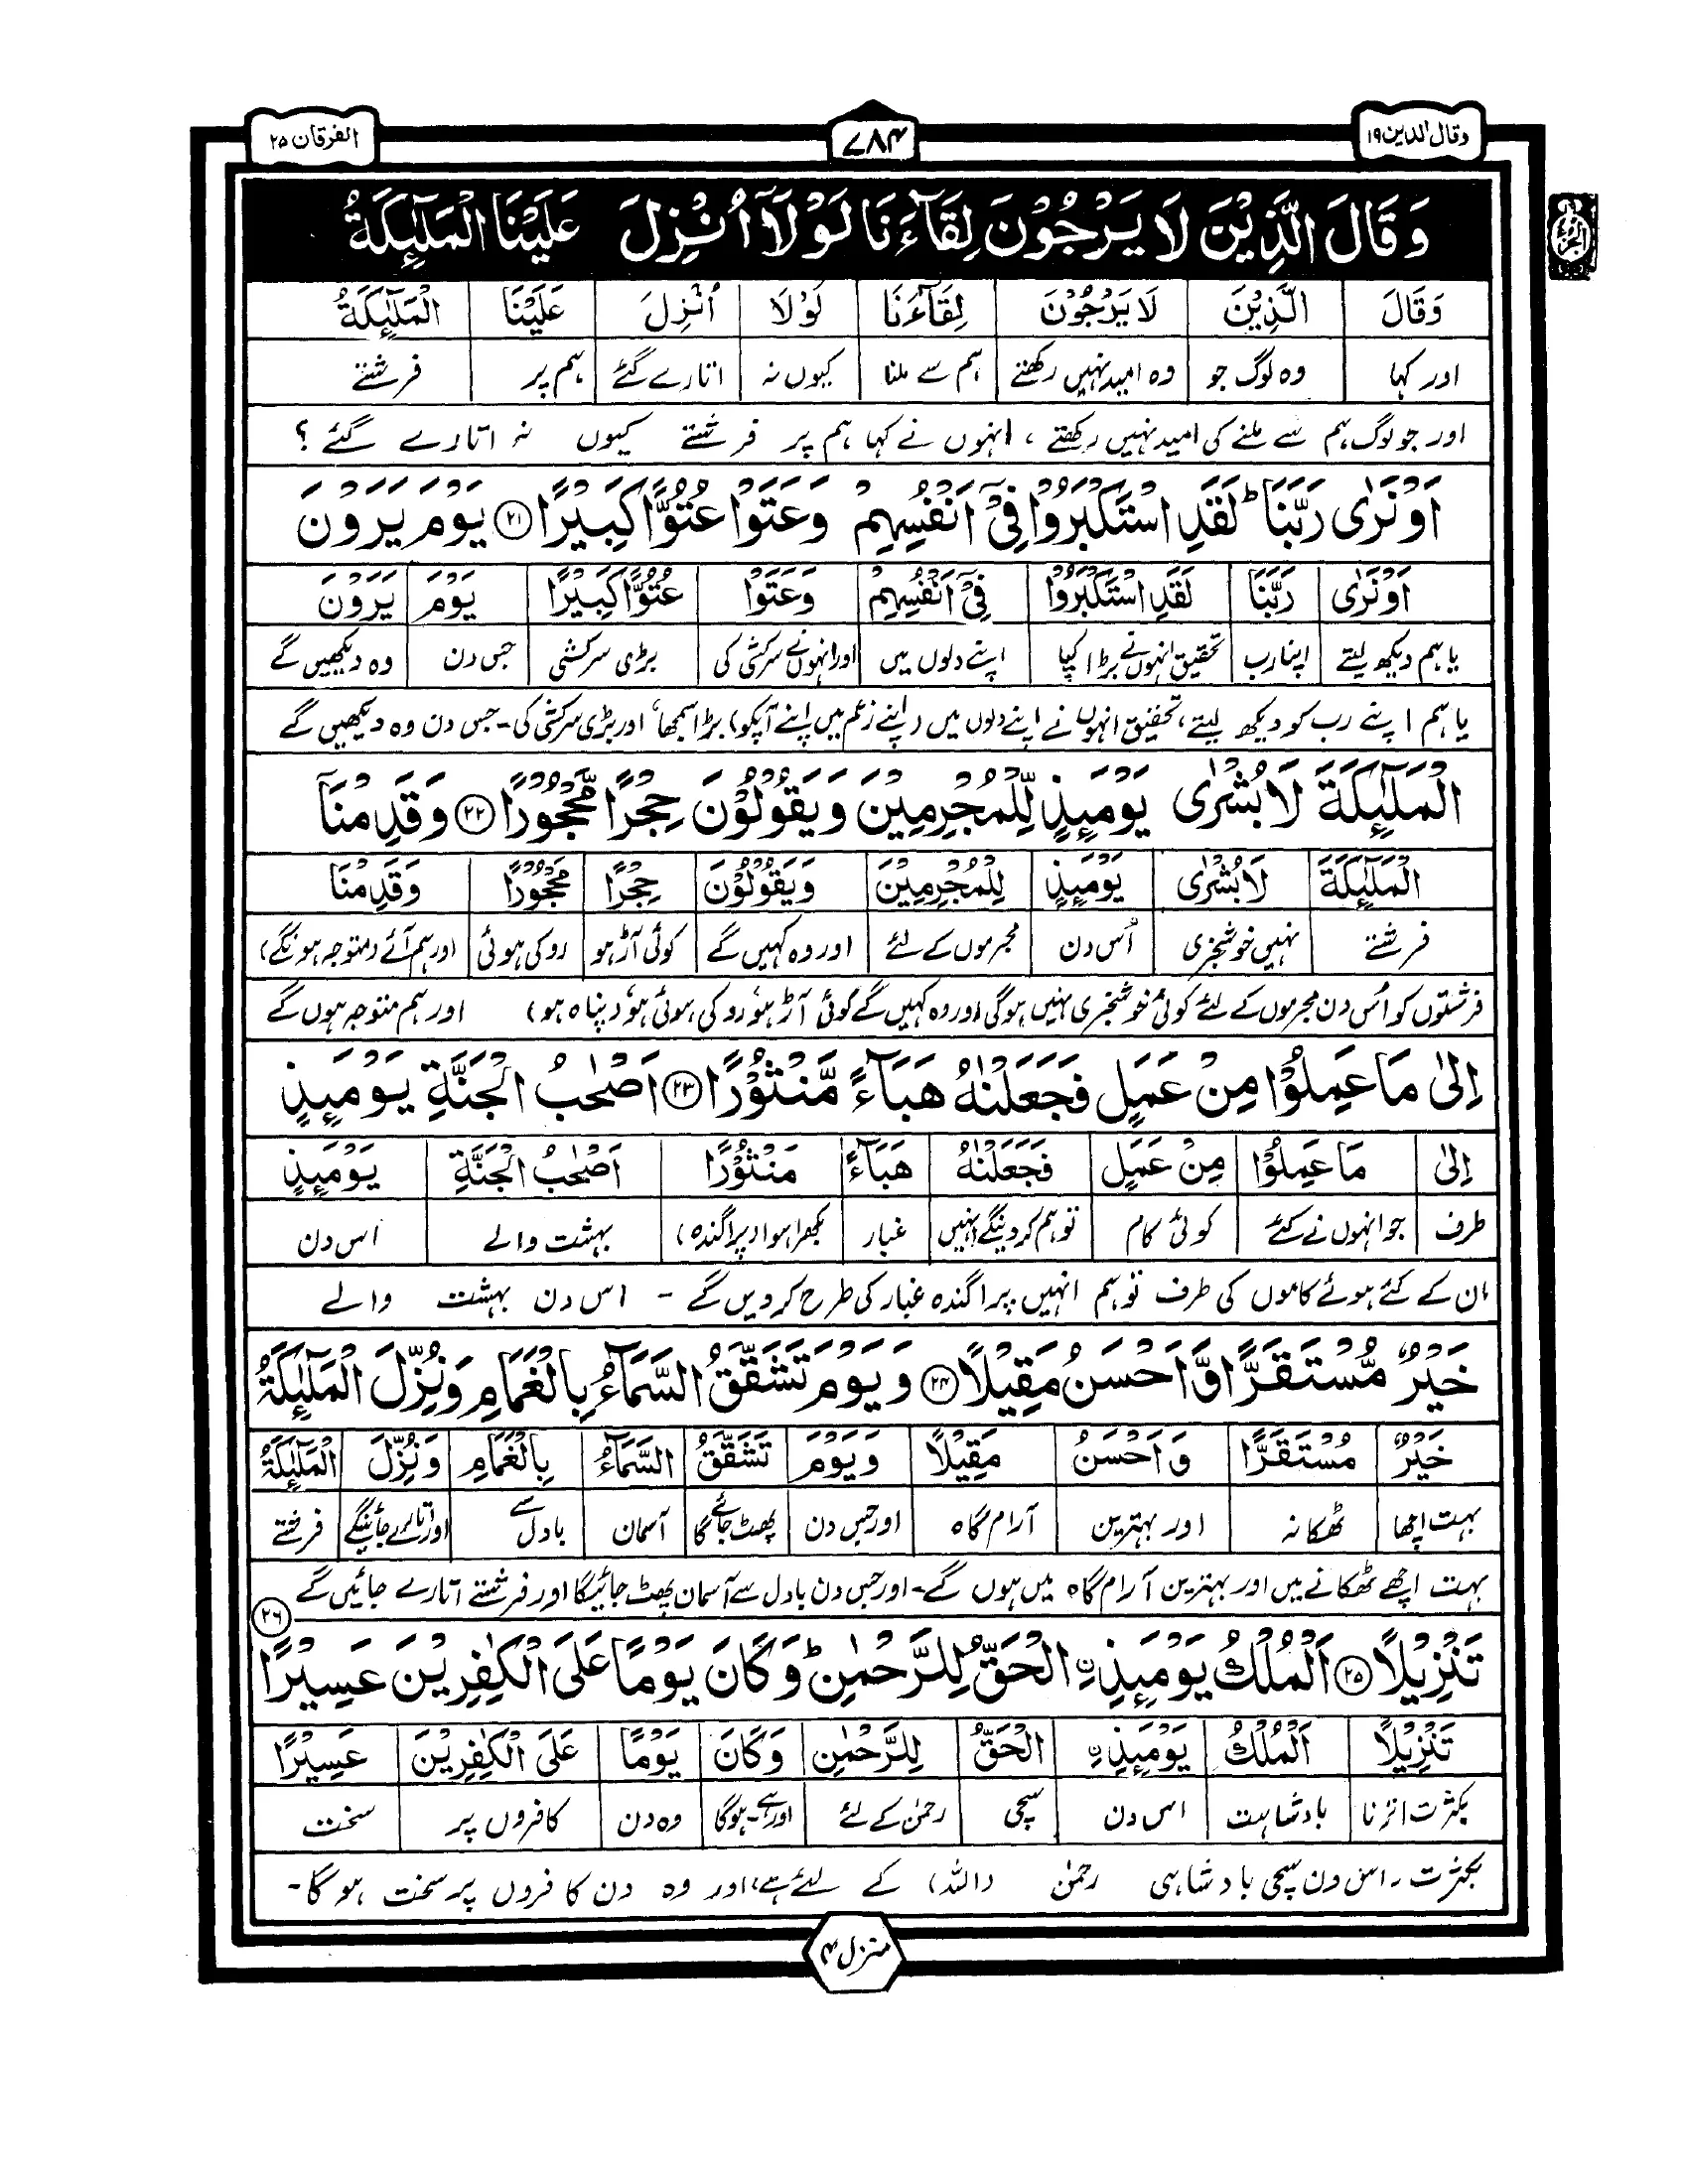 وقال الذین ۱۹
۷۸۴
الفرقان ۲۵
وَقَالَ الَّذِيْنَ لَا يَرْجُوْنَ لِقَآءَنَا لَوْلَآ اُنْزِلَ عَلَيْنَا الْمَلٰٓئِكَةُ
وَقَالَ الَّذِيْنَ لَا يَرْجُوْنَ لِقَآءَنَا لَوْلَا اُنْزِلَ عَلَيْنَا الْمَلٰٓئِكَةُ
اور کہا وہ لوگ جو وہ امید نہیں رکھتے ہم سے ملنا کیوں نہ اتارے گئے ہم پر فرشتے
اور جو لوگ ہم سے ملنے کی امید نہیں رکھتے ، انہوں نے کہا ہم پر فرشتے کیوں نہ اتارے گئے ؟
اَوْ نَرٰى رَبَّنَا ؕ لَقَدِ اسْتَكْبَرُوْا فِيْٓ اَنْفُسِهِمْ وَعَتَوْا عُتُوًّا كَبِيْرًا ۲۱ يَوْمَ يَرَوْنَ
اَوْ نَرٰى رَبَّنَا لَقَدِ اسْتَكْبَرُوْا فِيْٓ اَنْفُسِهِمْ وَعَتَوْا عُتُوًّا كَبِيْرًا يَوْمَ يَرَوْنَ
یا ہم دیکھ لیتے اپنا رب تحقیق انہوں نے بڑا کیا اپنے دلوں میں اور انہوں نے سرکشی کی بڑی سرکشی جس دن وہ دیکھیں گے
یا ہم اپنے رب کو دیکھ لیتے، تحقیق انہوں نے اپنے دلوں میں (اپنے زعم میں اپنے آپکو) بڑا سمجھا، اور بڑی سرکشی کی۔ جس دن وہ دیکھیں گے
الْمَلٰٓئِكَةَ لَا بُشْرٰى يَوْمَئِذٍ لِّلْمُجْرِمِيْنَ وَيَقُوْلُوْنَ حِجْرًا مَّحْجُوْرًا ۲۲ وَقَدِمْنَآ
الْمَلٰٓئِكَةَ لَا بُشْرٰى يَوْمَئِذٍ لِلْمُجْرِمِيْنَ وَيَقُوْلُوْنَ حِجْرًا مَّحْجُوْرًا وَقَدِمْنَا
فرشتے نہیں خوشخبری اُس دن مجرموں کے لئے اور وہ کہیں گے کوئی آڑ ہو روکی ہوئی اور ہم آئے (متوجہ ہونگے)
فرشتوں کو اُس دن مجرموں کے لئے کوئی خوشخبری نہیں ہوگی اور وہ کہیں گے کوئی آڑ ہو، روکی ہوئی ہو، (پناہ ہو) اور ہم متوجہ ہوں گے
اِلٰى مَا عَمِلُوْا مِنْ عَمَلٍ فَجَعَلْنٰهُ هَبَآءً مَّنْثُوْرًا ۲۳ اَصْحٰبُ الْجَنَّةِ يَوْمَئِذٍ
اِلٰى مَا عَمِلُوْا مِنْ عَمَلٍ فَجَعَلْنٰهُ هَبَآءً مَنْثُوْرًا اَصْحٰبُ الْجَنَّةِ يَوْمَئِذٍ
طرف جو انہوں نے کئے کوئی کام تو ہم کردینگے انہیں غبار بکھرا ہوا (پراگندہ) بہشت والے اس دن
ان کے کئے ہوئے کاموں کی طرف تو ہم انہیں پراگندہ غبار کی طرح کردیں گے - اس دن بہشت والے
خَيْرٌ مُّسْتَقَرًّا وَّاَحْسَنُ مَقِيْلًا ۲۴ وَيَوْمَ تَشَقَّقُ السَّمَآءُ بِالْغَمَامِ وَنُزِّلَ الْمَلٰٓئِكَةُ
خَيْرٌ مُسْتَقَرًّا وَ اَحْسَنُ مَقِيْلًا وَيَوْمَ تَشَقَّقُ السَّمَآءُ بِالْغَمَامِ وَنُزِّلَ الْمَلٰٓئِكَةُ
بہت اچھا ٹھکانہ اور بہترین آرام گاہ اور جس دن پھٹ جائے گا آسمان بادل سے اور اتارے جائینگے فرشتے
بہت اچھے ٹھکانے میں اور بہترین آرام گاہ میں ہوں گے۔ اور جس دن بادل سے آسمان پھٹ جائیگا اور فرشتے اتارے جائیں گے
تَنْزِيْلًا ۲۵ اَلْمُلْكُ يَوْمَئِذِ ِۨالْحَقُّ لِلرَّحْمٰنِ ؕ وَكَانَ يَوْمًا عَلَى الْكٰفِرِيْنَ عَسِيْرًا ۲۶
تَنْزِيْلًا اَلْمُلْكُ يَوْمَئِذِ ِۨ الْحَقُّ لِلرَّحْمٰنِ وَكَانَ يَوْمًا عَلَى الْكٰفِرِيْنَ عَسِيْرًا
بکثرت اترنا بادشاہت اس دن سچی رحمٰن کے لئے اور ہے۔ہوگا وہ دن کافروں پر سخت
بکثرت ۔ اس دن سچی بادشاہی رحمٰن (اللہ) کے لئے ہے، اور وہ دن کافروں پر سخت ہوگا۔
منزل ۴